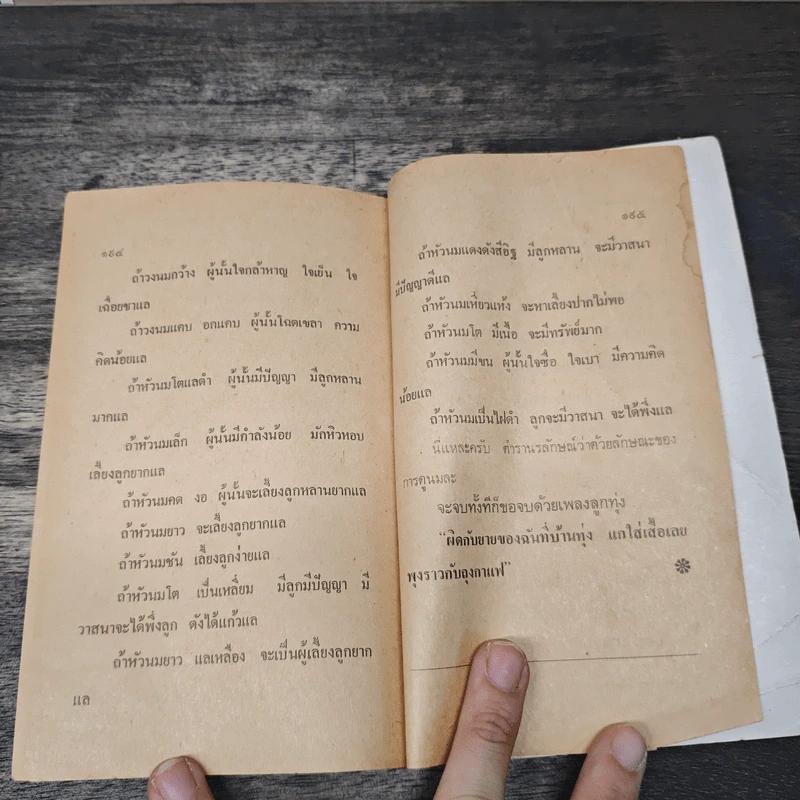 ๑๙๔
ถ้าวงนมกว้าง ผู้นั้นใจกล้าหาญ ใจเย็น ใจ
เฉื่อยชาแล
ถ้าวงนมแคบ อกแคบ ผู้นั้นโฉดเขลา ความ
คิดน้อยแล
ถ้าหัวนมโตแลดำ ผู้นั้นมีปัญญา มีลูกหลาน
มากแล
ถ้าหัวนมเล็ก ผู้นั้นมีกำลังน้อย มักหิวหอบ
เลี้ยงลูกยากแล
ถ้าหัวนมคด งอ ผู้นั้นจะเลี้ยงลูกหลานยากแล
ถ้าหัวนมยาว จะเลี้ยงลูกยากแล
ถ้าหัวนมชัน เลี้ยงลูกง่ายแล
ถ้าหัวนมโต เป็นเหลี่ยม มีลูกมีปัญญา มี
วาสนาจะได้พึ่งลูก ดังได้แก้วแล
ถ้าหัวนมยาว แลเหลือง จะเป็นผู้เลี้ยงลูกยาก
แล
๑๙๕
ถ้าหัวนมแดงดังสีอิฐ มีลูกหลาน จะมีวาสนา
มีปัญญาดีแล
ถ้าหัวนมเหี่ยวแห้ง จะหาเลี้ยงปากไม่พอ
ถ้าหัวนมโต มีเนื้อ จะมีทรัพย์มาก
ถ้าหัวนมมีขน ผู้นั้นใจซื่อ ใจเบา มีความคิด
น้อยแล
ถ้าหัวนมเป็นไฝดำ ลูกจะมีวาสนา จะได้พึ่งแล
นี่แหละครับ ตำรานรลักษณ์ว่าด้วยลักษณะของ
การดูนมละ
จะจบทั้งทีก็ขอจบด้วยเพลงลูกทุ่ง
"ผิดกับยายของฉันที่บ้านทุ่ง แกใส่เสื้อเลย
พุงราวกับถุงกาแฟ"